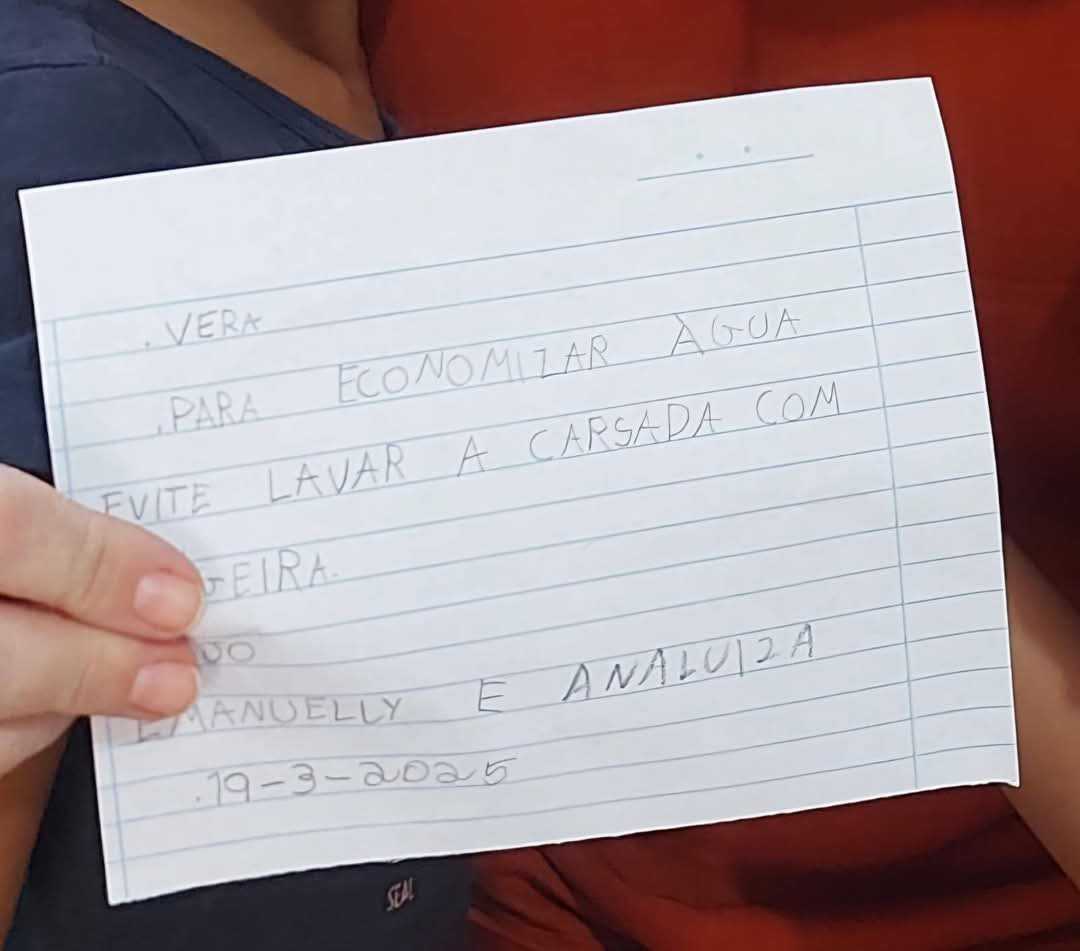 .VERA
.PARA ECONOMIZAR ÀGUA
EVITE LAVAR A CARSADA COM
GEIRA.
EMANUELLY E ANALUIZA
.19-3-2025